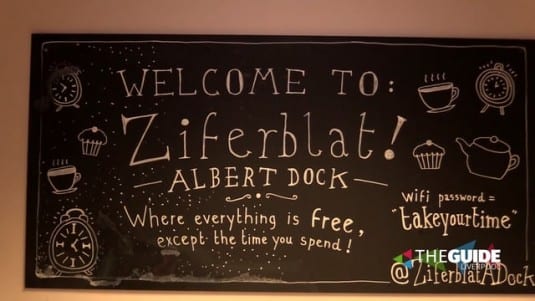 WELCOME TO:
Ziferblat!
ALBERT DOCK
Where everything is free,
except the time you spend!
wifi password =
"takeyourtime"
THEGUIDE
LIVERPOOL
@ZiferblatADock